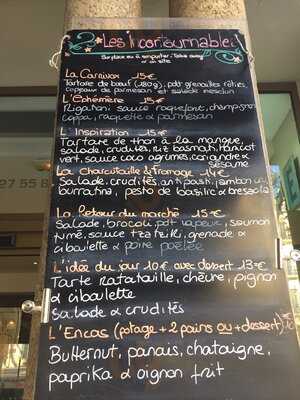 Les Incontournables
Sur place ou à emporter. Take away
La Carnivor 15€
Tartare de boeuf (180g), pdt grenailles rôties,
copeaux de parmesan et salade mesclun
L'Ephémère 15€
Rigatoni sauce roquefort, champignon
coppa, raquette & parmesan
L'Inspiration 15€
Tartare de thon à la mangue,
salade, crudités, riz basmati, haricot
vert, sauce coco agrumes, coriandre &
sésame
La Charcutaille & Fromage 14€
Salade, crudités, antipasti, jambon cru
burratina, pesto de basilic & bresaola
Le Retour du marché 15€
Salade, brocoli, pdt vapeur, saumon
fumé, sauce tzatziki, grenade &
ciboulette & poire poêlée
L'idée du jour 10€ avec dessert 13€
Tarte Ratatouille, chèvre, pignon
& ciboulette
Salade & crudités
L'Encas (potage + 2 pains ou + dessert)
Butternut, panais, chataigne,
paprika & oignon frit
27 55 8